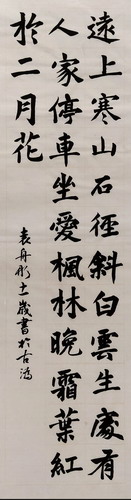 遠上寒山石徑斜白雲生處有
人家停車坐愛楓林晚霜葉紅
於二月花
袁丹彤十一歲書於古鴻